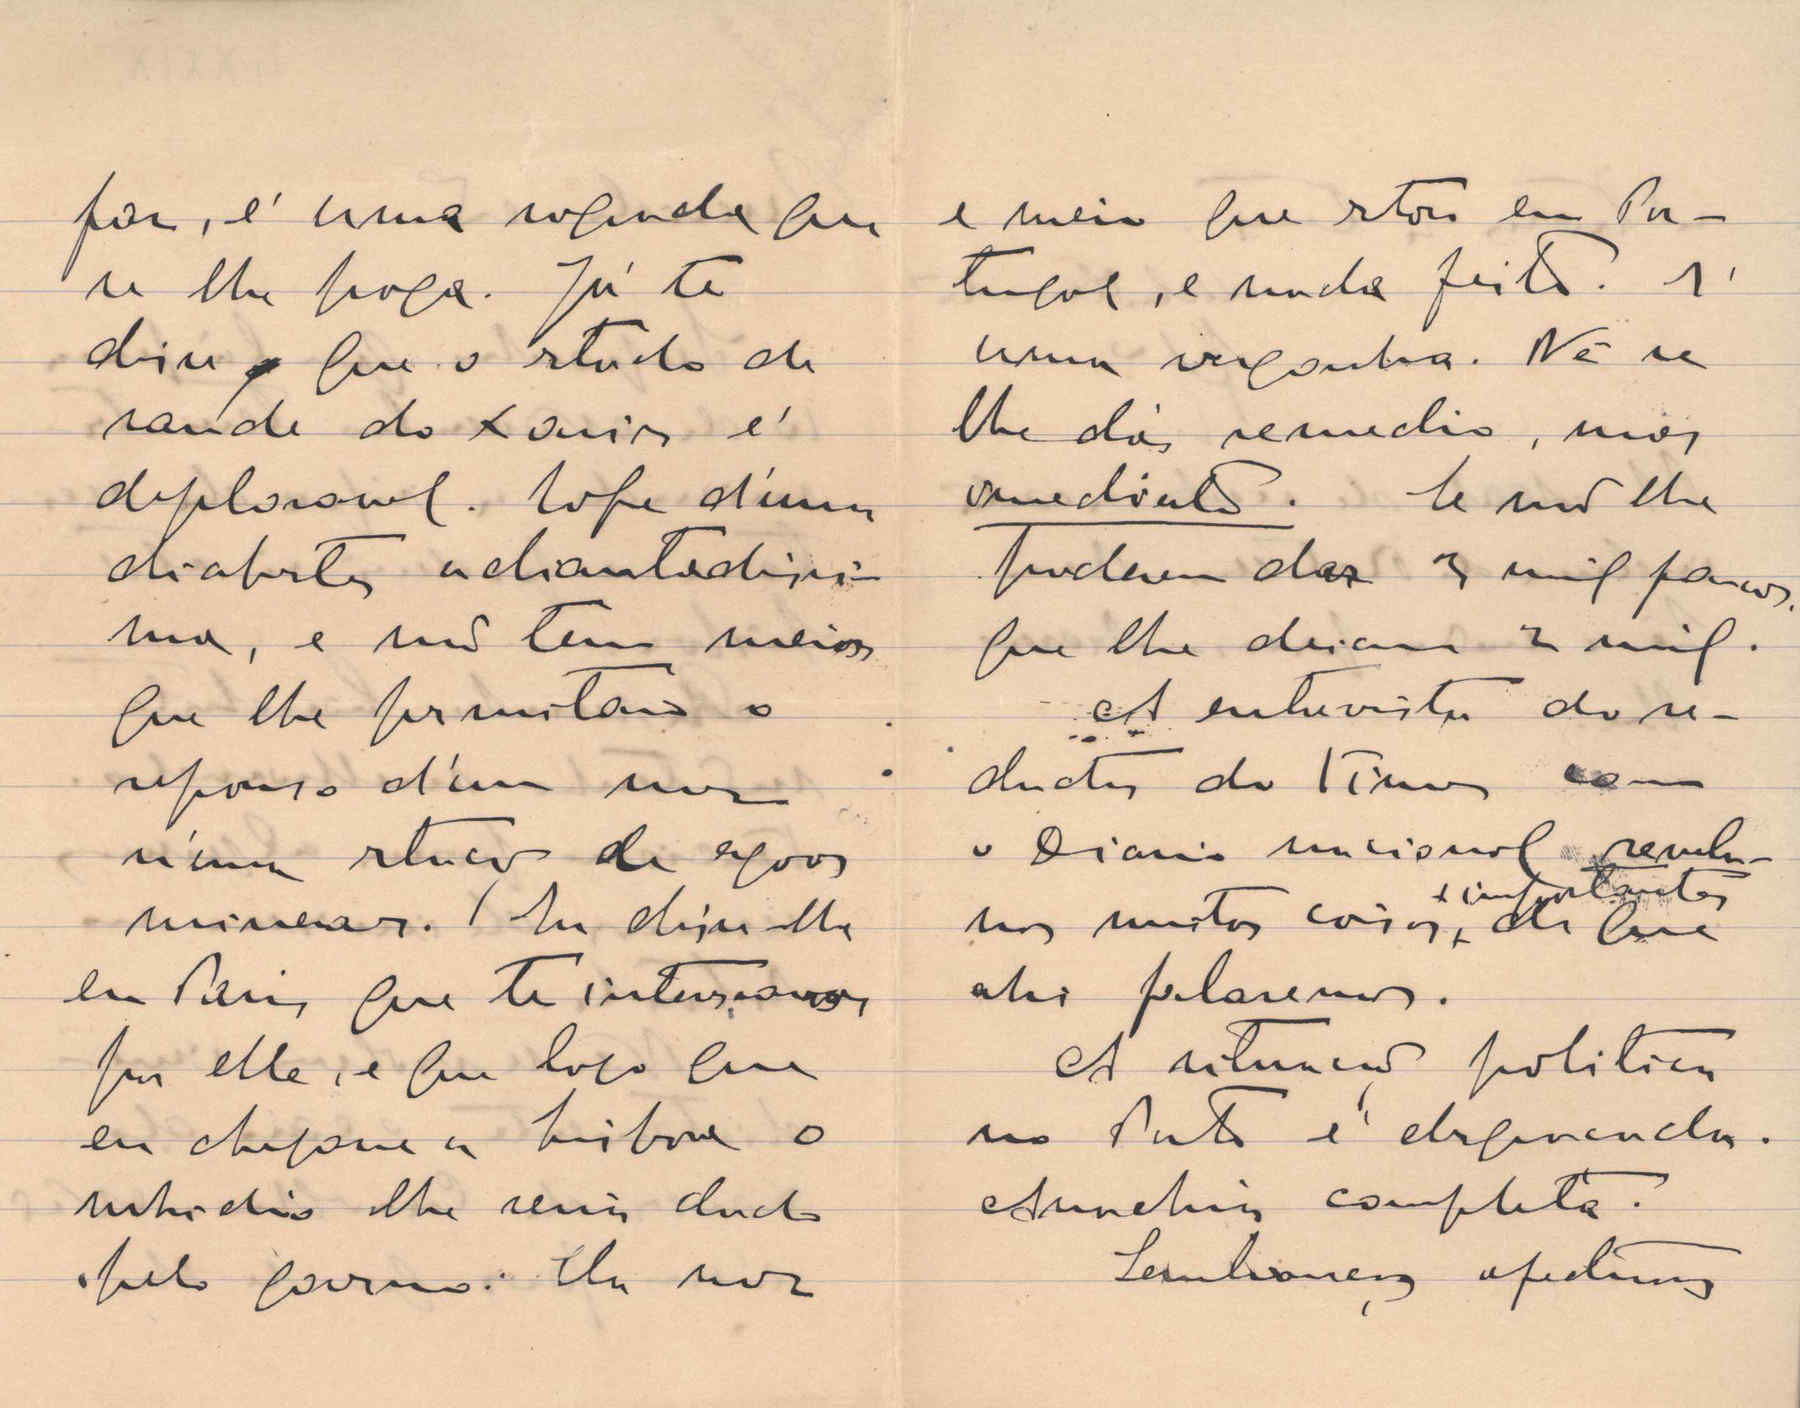 fôr, é uma segunda que
se lhe prega. Já te
disse que o estado de
saude do Xavier é
deploravel. Sofre d'uma
diabetes adiantadissi-
ma, e não tem meios
que lhe permitam o
repouso d'um mez
n'uma estação de agoas
mineraes. Tu disse-lhe
em Paris que te interessavas
por elle, e que logo que
eu chegasse a Lisboa o
subsidio lhe seria dado
pelo governo. Um mez
e meio que estou em Por-
tugal, e nada feito. É
uma vergonha. Vê se
lhe dás remedio, mas
immediato. Se não lhe
poderem dar 3 mil francos,
que lhe deiam 2 mil.
A entrevista do re-
dactor do Times com
o Diario nacional revela-
nos muitas coisas, importantes
de que
ahi falaremos.
A situação politica
no Porto é desgraçada.
Anarchia completa.
Lembranças afectuosas